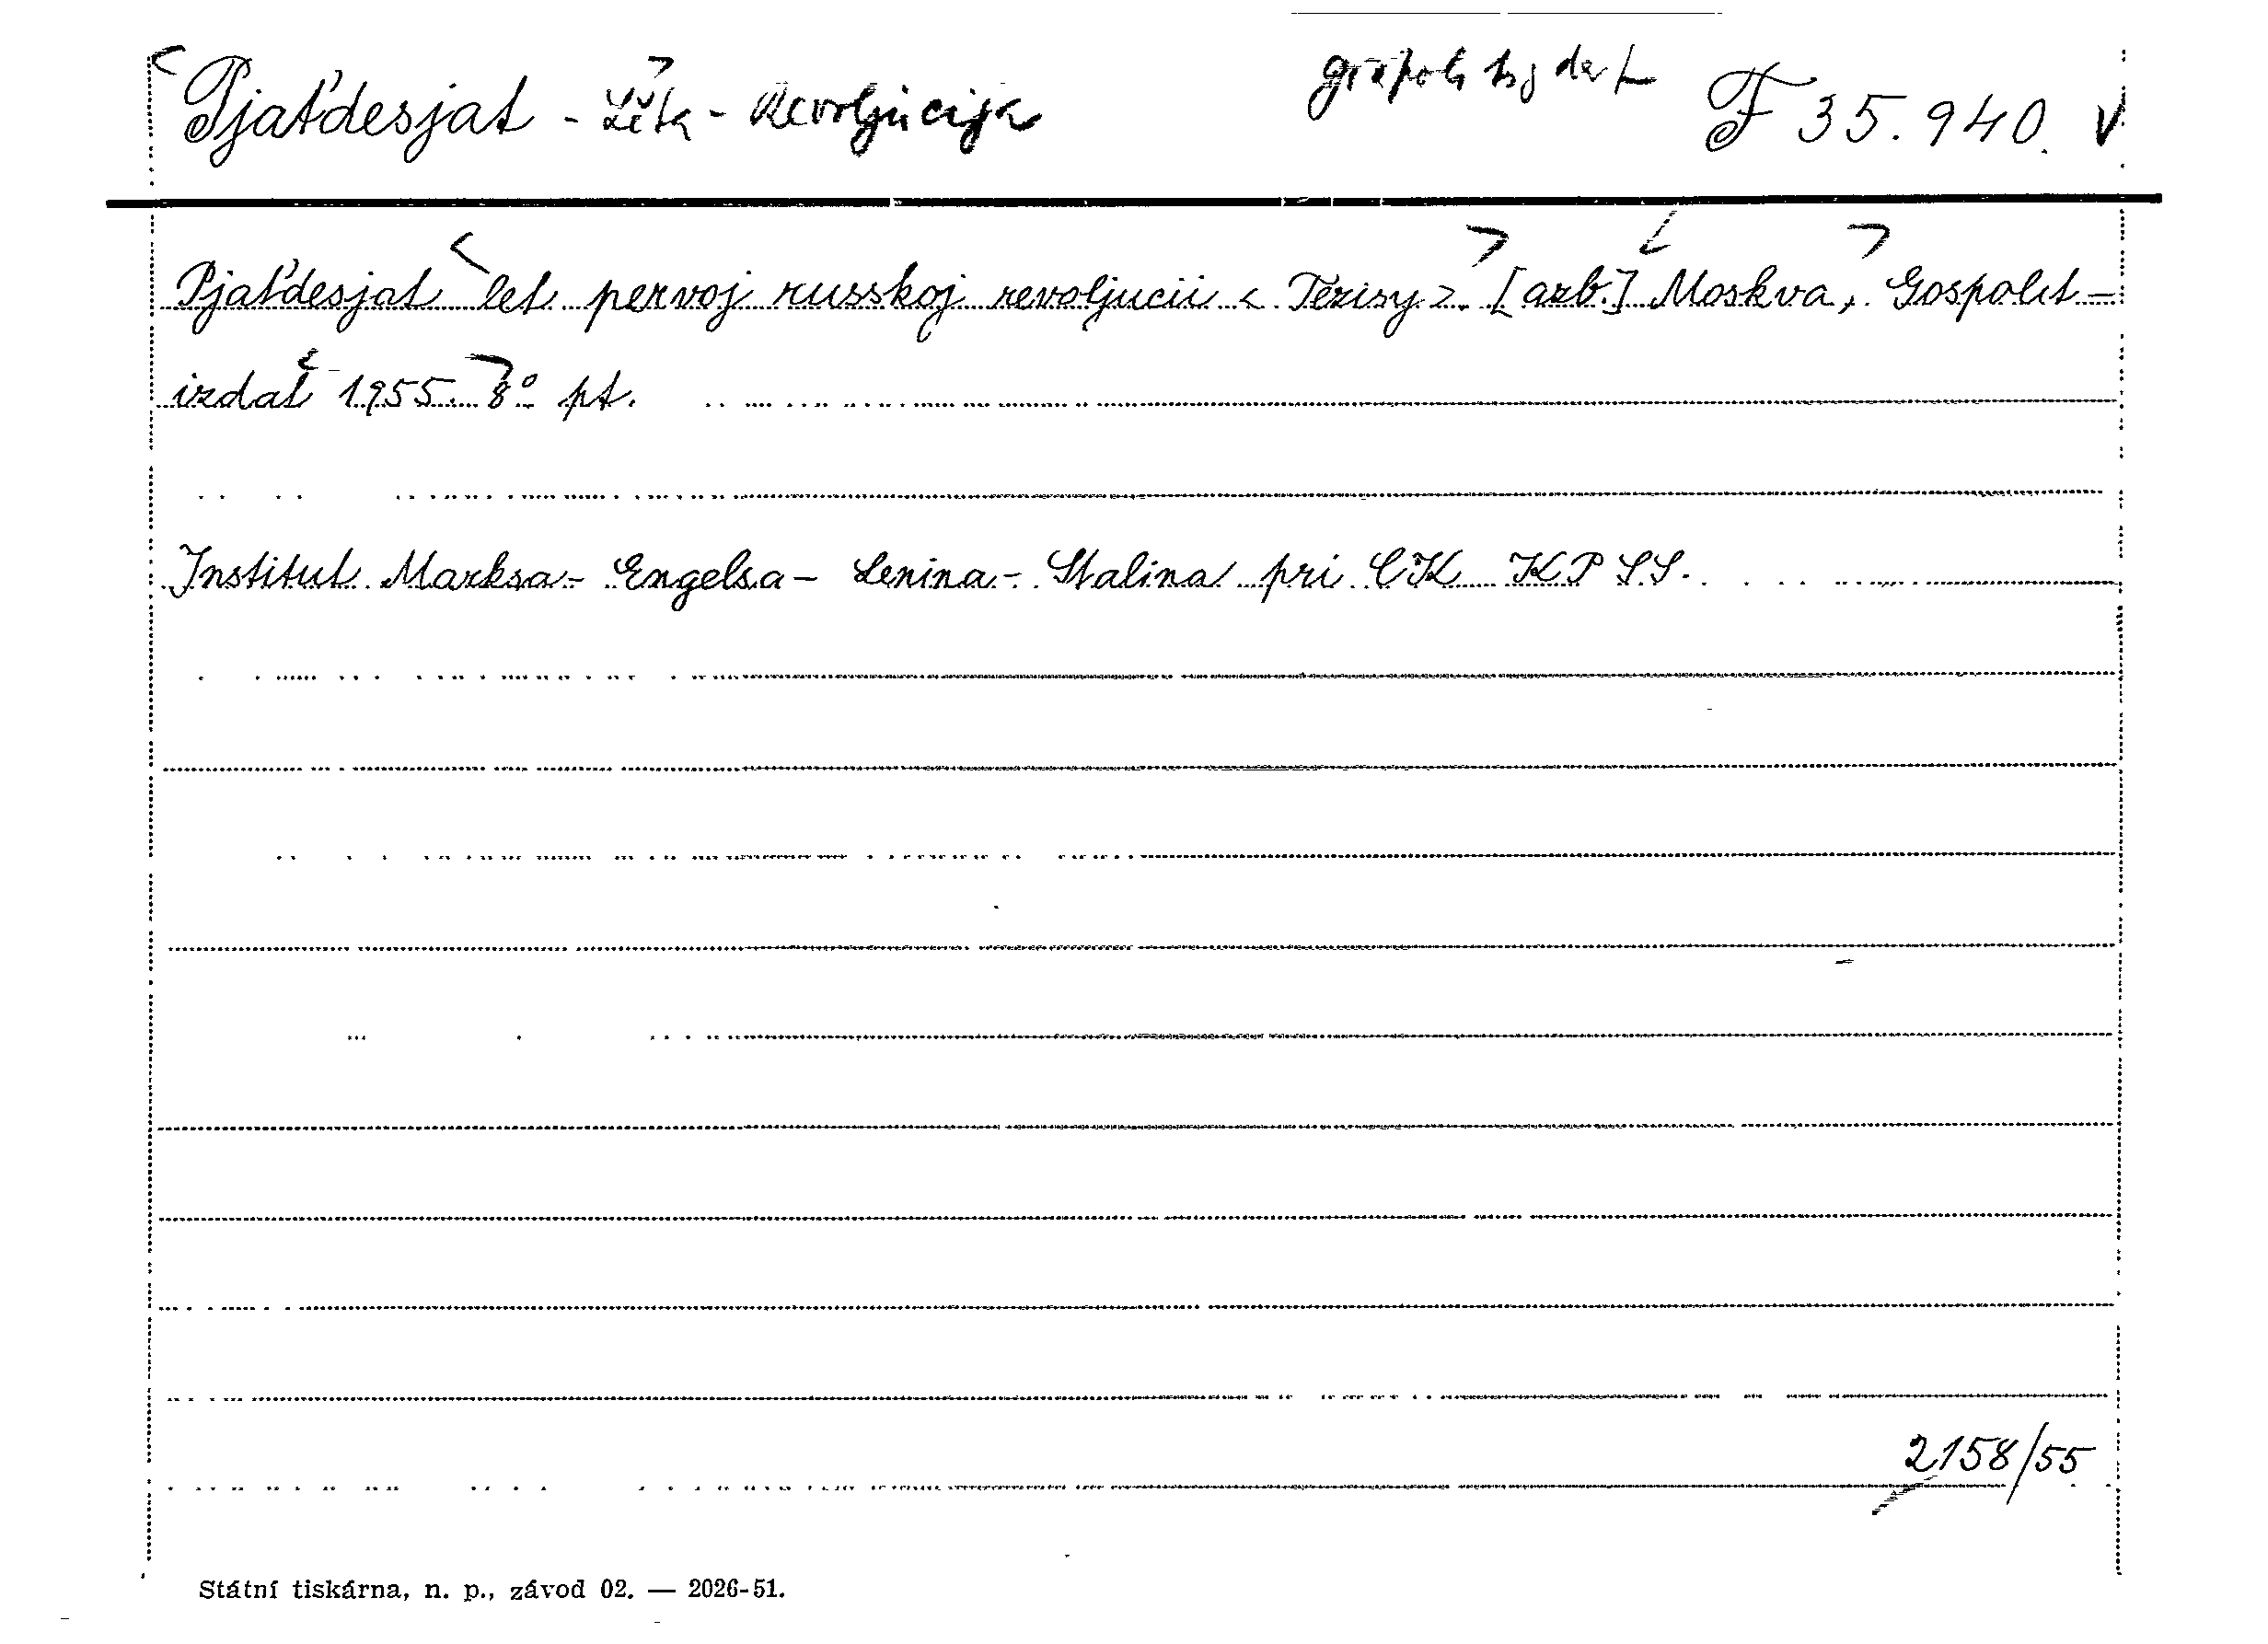 Pjaťdesjat - Lěta - Revoljucija F 35.940. V
Pjaťdesjat let pervoj russkoj revoljucii < Tězisy >. [azb.] Moskva, Gospolit-
izdat 1955. 8° pt.
Institut Marksa - Engelsa - Lenina - Stalina pri CK KPSS.
2158/55
Státní tiskárna, n. p., závod 02. — 2026-51.